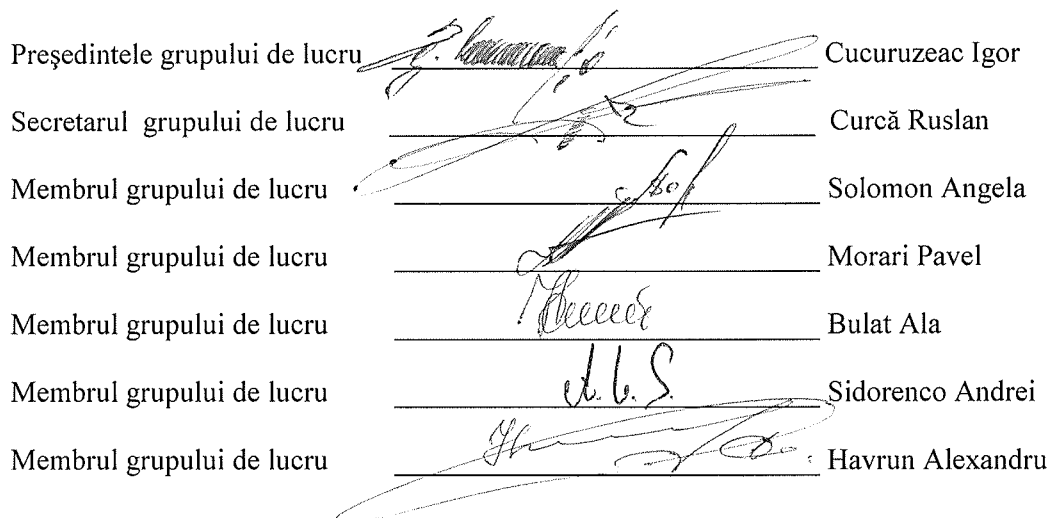 Preşedintele grupului de lucru Cucuruzeac Igor
Secretarul grupului de lucru Curcă Ruslan
Membrul grupului de lucru Solomon Angela
Membrul grupului de lucru Morari Pavel
Membrul grupului de lucru Bulat Ala
Membrul grupului de lucru Sidorenco Andrei
Membrul grupului de lucru Havrun Alexandru